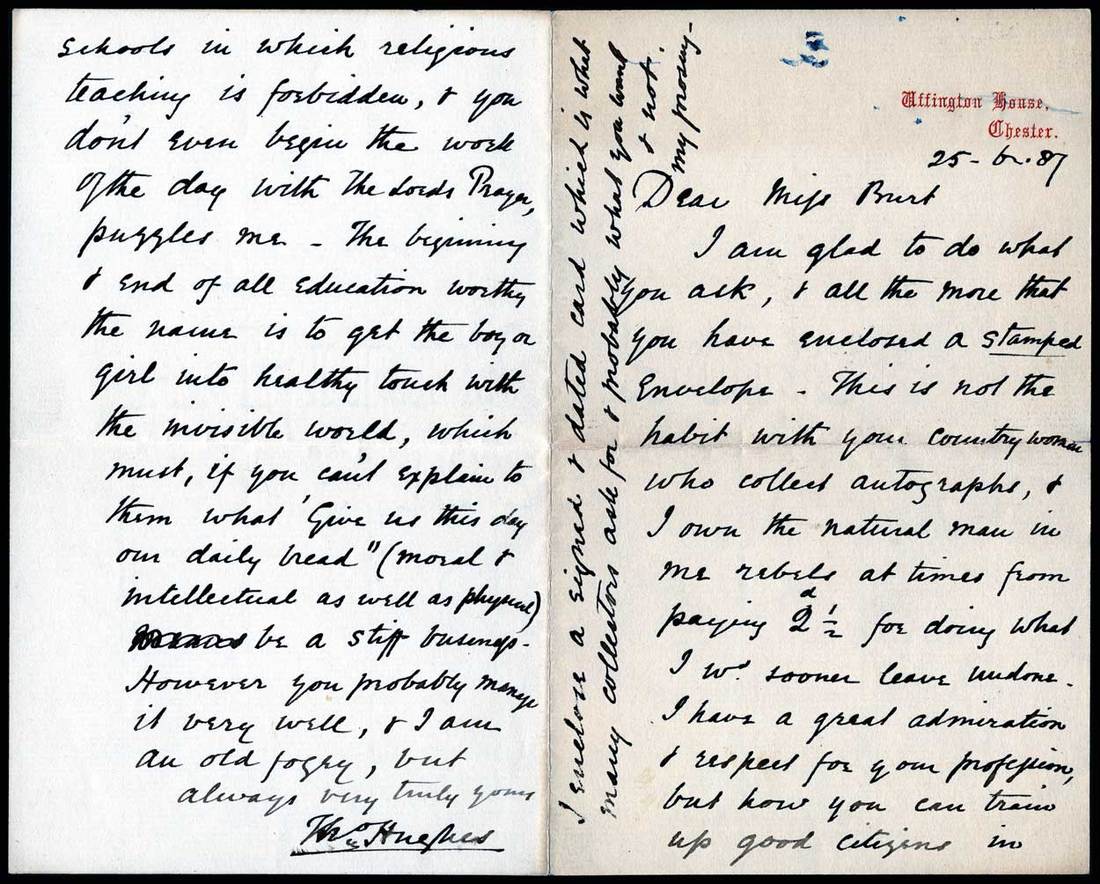 Uffington House,
Chester.
25-6-87
Dear Miss Burt
I am glad to do what
you ask, & all the more that
you have enclosed a stamped
Envelope - This is not the
habit with your countrywomen
who collect autographs, &
I own the natural man in
me rebels at times from
paying 2d ½ for doing what
I wd. sooner leave undone.
I have a great admiration
& respect for your profession,
but how you can train
up good citizens in
schools in which religious
teaching is forbidden, & you
don't even begin the work
of the day with the Lords Prayer,
puzzles me - The beginning
& end of all education worthy
the name is to get the boy or
girl into healthy touch with
the invisible world, which
must, if you can't explain to
them what 'Give us this day
our daily bread" (moral &
intellectual as well as physical)
be a stiff business.
However you probably manage
it very well, & I am
an old fogey, but
always very truly yours
Thos Hughes
I enclose a signed & dated card which is what
many collectors ask for & probably what you want
& not.